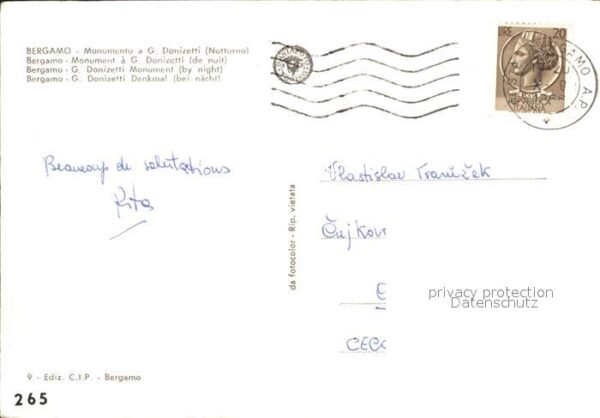 BERGAMO - Monumento a G. Donizetti (Notturno)
Bergamo - Monument à G. Donizetti (de nuit)
Bergamo - G. Donizetti Monument (by night)
Bergamo - G. Donizetti Denkmal (bei nacht)
LIRE 20
REPUBBLICA
ITALIANA
GAMO A.P.
Beaucoup de salutations
Rita
da fotocolor - Rip. vietata
Vlastislav
Čujkov
privacy protection
Datenschutz
9 - Ediz. C.I.P. - Bergamo
265